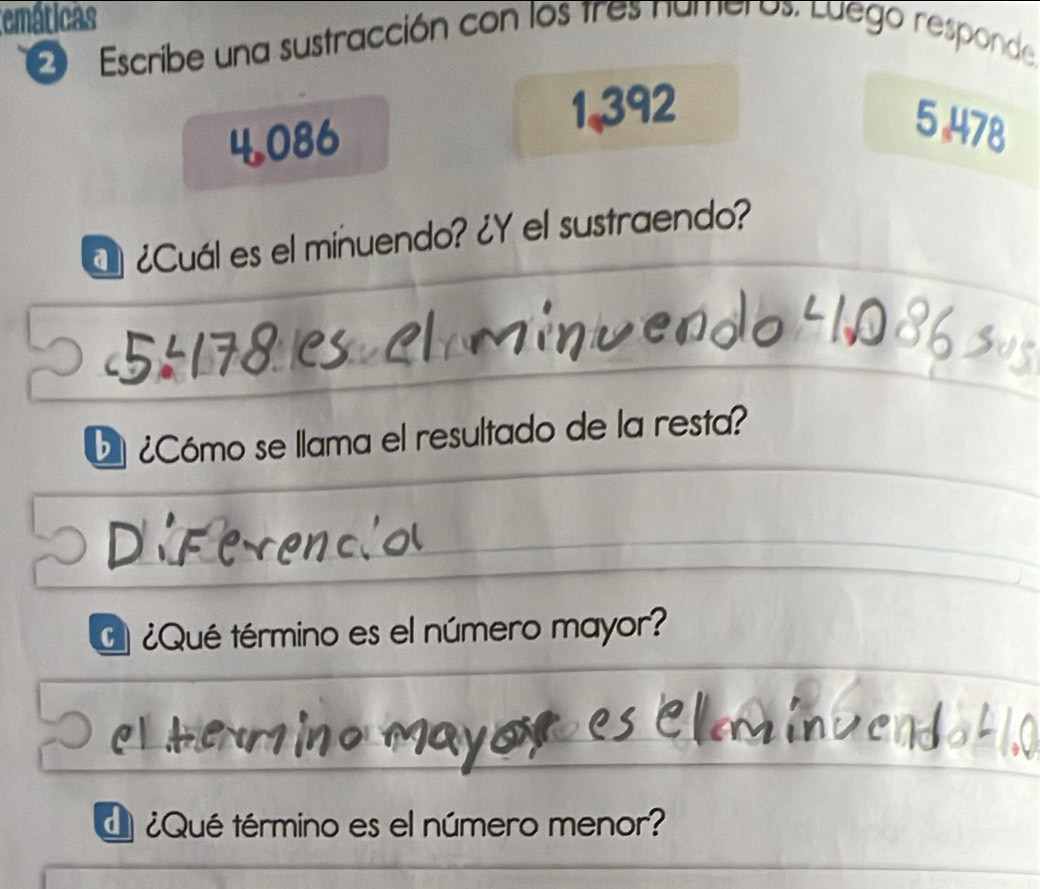 emáticas
2 Escribe una sustracción con los tres números. Luego responde.
4.086 1.392 5.478
a ¿Cuál es el minuendo? ¿Y el sustraendo?
5.478 es el minuendo 4.086 sus
b ¿Cómo se llama el resultado de la resta?
Diferencia
c ¿Qué término es el número mayor?
el termino mayor es el minuendo 4.0
d ¿Qué término es el número menor?